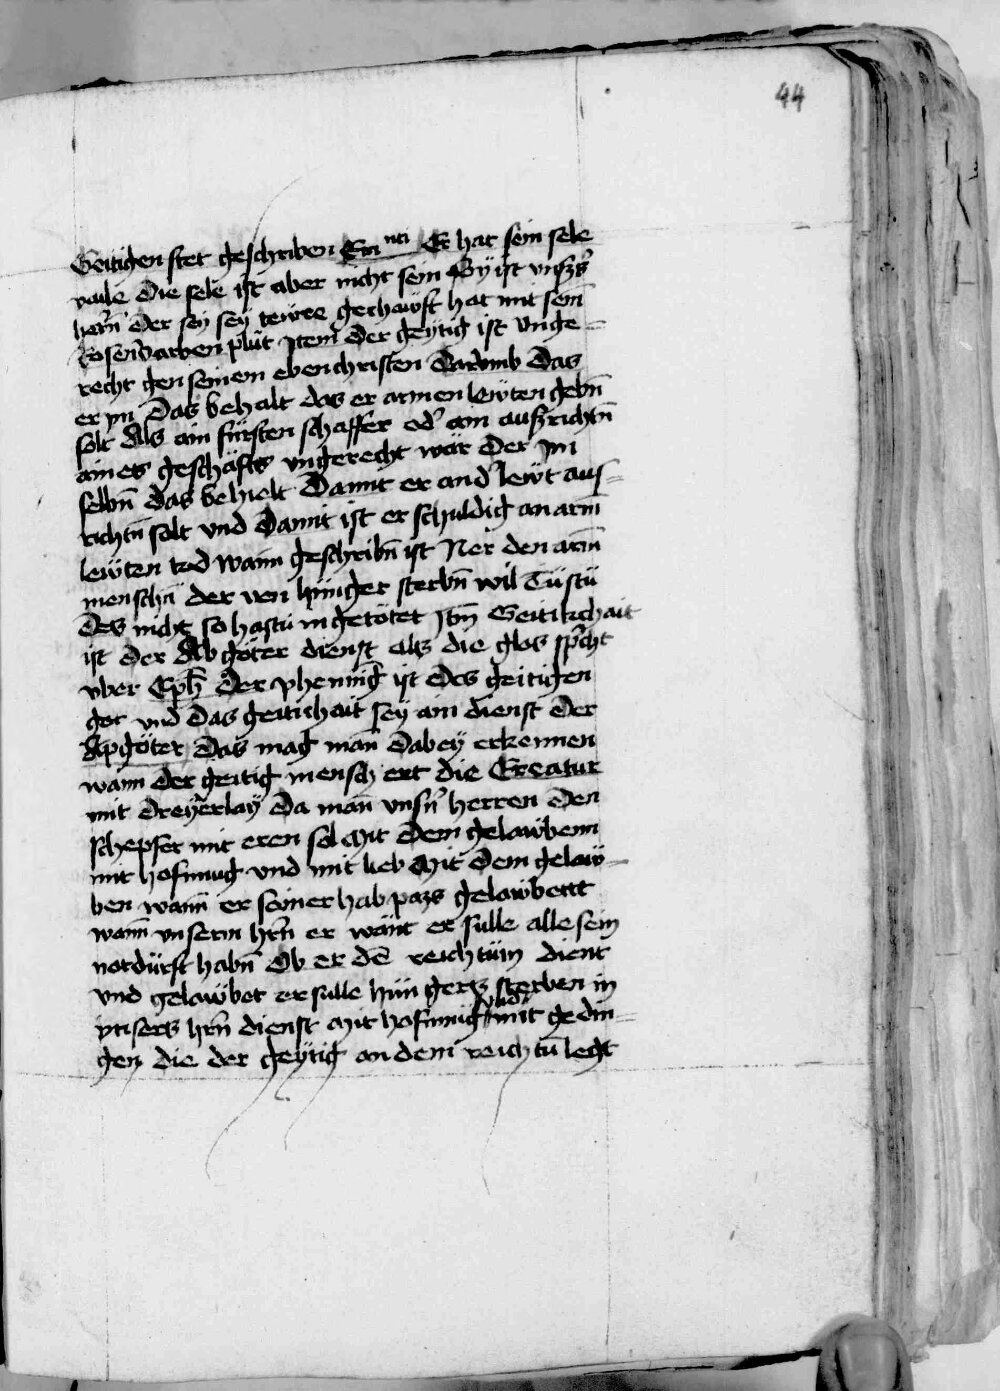 44
Geitigen stet geschriben Er hat sein sele
vaile Die sele ist aber nicht sein Sy ist vnsers
herrn Der sey sey tewre gechawft hat mit seim
Rosenvarben plüt Item Der geytig ist Vnge-
recht gen seinem ebenchristen Darvmb Das
er yn Das behalt das er armen lewten gebn̄
solt Als ain fürsten schaffer od' ain außrichtn̄
aines geschäfts vngerecht wär Der Im
selbn̄ Das behielt Damit er and' lewt aus-
richtn̄ solt vnd Damit ist er schuldig an arm̄
lewten tod wann geschribn̄ ist Ner den arm̄
menschn̄ der von hünger sterbn̄ wil Tüstu
Des nicht so hastu in getötet Itm̄ Geitikchait
ist Der Abgöter dienst als die glos spricht
vber Eph̄ Der phenning ist des geitigen
got vnd Das geitichait sey ain dienst Der
Apgöter Das mag man̄ Dabey erkennen
wann der geitig mensch ert die Creatur
mit dreyerlay Da man̄ vnsn̄ herren Den
schepfer mit eren sol Mit Dem gelawbenn
mit hofnung vnd mit lieb Mit Dem gelaw-
ben wann er seiner hab pazs gelawbett
wann vnserm hrn̄ er wänt er sulle alle sein
notdürft habn̄ Ob er dē reichtüm dient
vnd gelawbet er sulle hüngers sterben in
vnsers hrn̄ dienst Mit hofnung vnd mit gedin-
gen die der geytig an dem reichtū legt